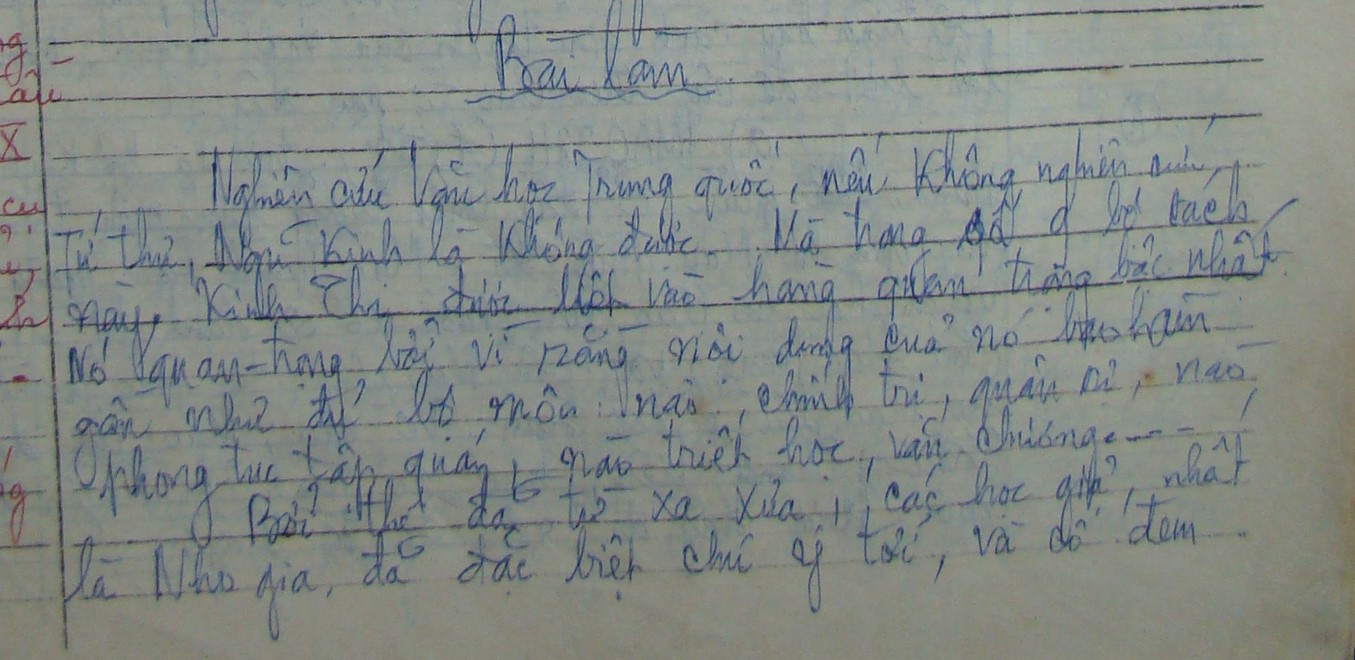 Bài làm
Nghiên cứu Văn học Trung quốc, nếu không nghiên cứu
Tứ thư, Ngũ Kinh là không được. Mà trong số 9 bộ sách
này, Kinh Thi được liệt vào hàng quan trọng bậc nhất.
Nó quan-trọng bởi vì rằng nội dung của nó bao hàm
gần như đủ bộ môn: nào chính trị, quân sự, nào
phong tục tập quán, nào triết học, văn chương....
Bởi thế đã từ xa xưa, các học giả, nhất
là Nho gia, đã đặc biệt chú ý tới, và đổ đem